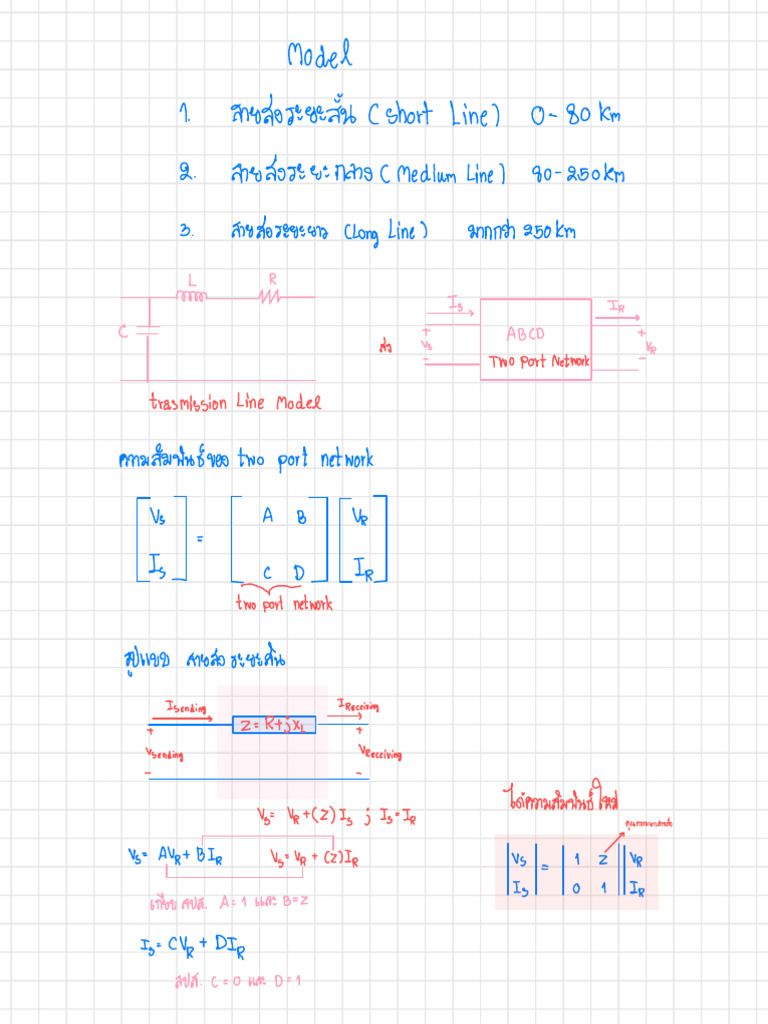 Model
1. สายส่งระยะสั้น (Short Line) 0-80 km
2. สายส่งระยะกลาง (Medium Line) 80-250km
3. สายส่งระยะยาว (Long Line) มากกว่า 250km
L R
C
trasmission Line Model
ส่ง
Is IR
+ ABCD +
Vs VR
- Two Port Network -
ความสัมพันธ์ของ two port network
Vs = A B VR
Is C D IR
two port network
รูปแบบ สายส่งระยะสั้น
Isending IReceiving
Z=R+jXL
+ +
Vsending VReceiving
- -
Vs= VR+(Z)Is ; Is=IR
Vs= AVR+BIR Vs=VR+(Z)IR
เทียบ สปส. A=1 และ B=Z
Is= CVR + DIR
สปส. C=0 และ D=1
ได้ความสัมพันธ์ใหม่
Vs = 1 Z VR
Is 0 1 IR